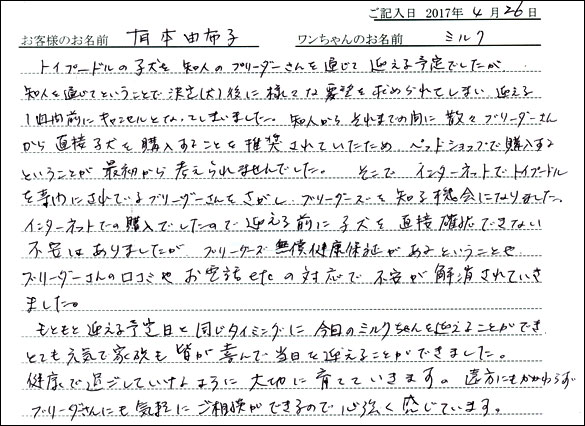 ご記入日 2017年 4月 26日
お客様のお名前 有本由布子 ワンちゃんのお名前 ミルク
トイプードルの子犬を知人のブリーダーさんを通じて迎える予定でしたが
知人を通じてということで決定(犬)後に様々な要望を求められてしまい迎える
1週間前にキャンセルとなってしまいました。知人からそれまでの間に散々ブリーダーさん
から直接子犬を購入することを推奨されていたためペットショップで購入する
ということが最初から考えられませんでした。そこでインターネットでトイプードル
を専門にされているブリーダーさんをさがし、ブリーダーズを知る機会になりました。
インターネットでの購入でしたので迎える前に子犬を直接確認できない
不安はありましたがブリーダーズ無償健康保証があるということや
ブリーダーさんの口コミやお電話etcの対応で不安が解消されていき
ました。
もともと迎える予定日と同じタイミングに今日のミルクちゃんを迎えることができ
とても元気で家族も皆が喜んで当日を迎えることができました。
健康で過ごしていけるように大切に育てていきます。遠方にもかかわらず
ブリーダーさんにも気軽にご相談ができるので心強く感じています。